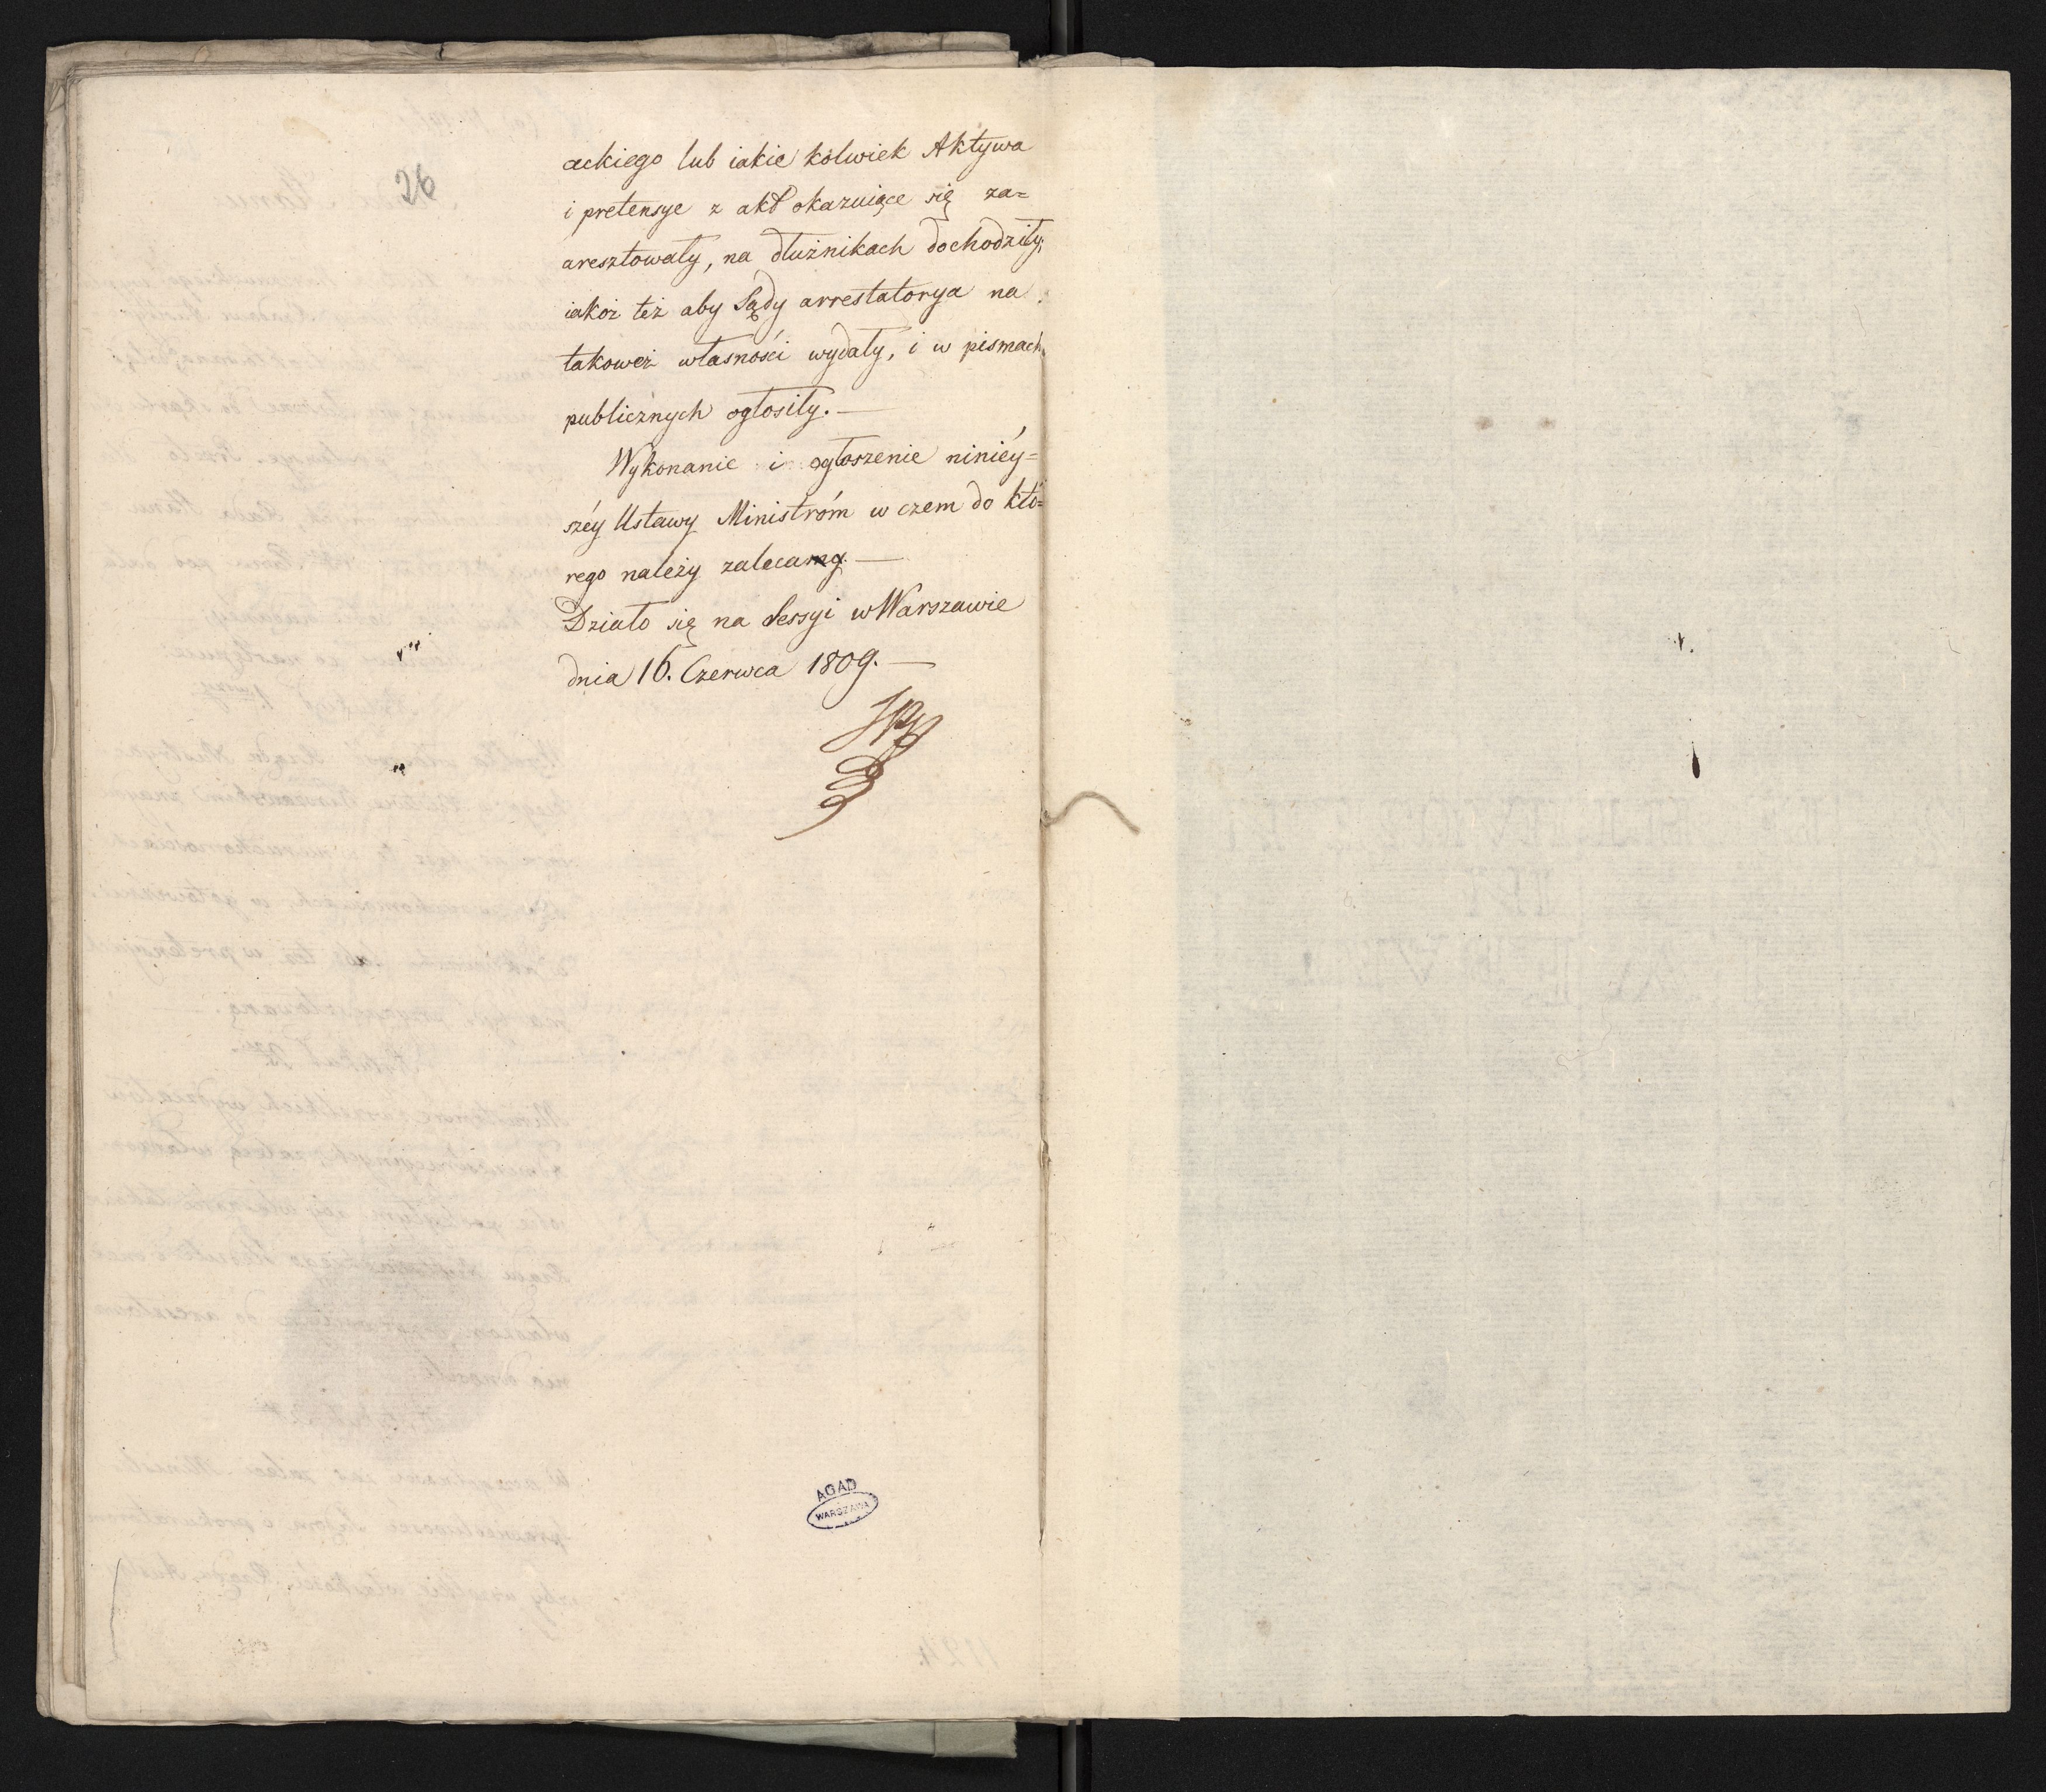 26
ackiego lub iakie kolwiek Aktywa
i pretensye z akt okazuiące się za=
aresztowały, na dłużnikach dochodziły,
iakoż też aby Sądy arrestatorya na
takoweż własności wydały, i w pismach
publicznych ogłosiły. —
Wykonanie i ogłoszenie niniéy=
széy Ustawy Ministróm w czem do któ=
rego należy zalecamy. —
Działo się na Sessyi w Warszawie
dnia 16. Czerwca 1809. —
AGAD
WARSZAWA